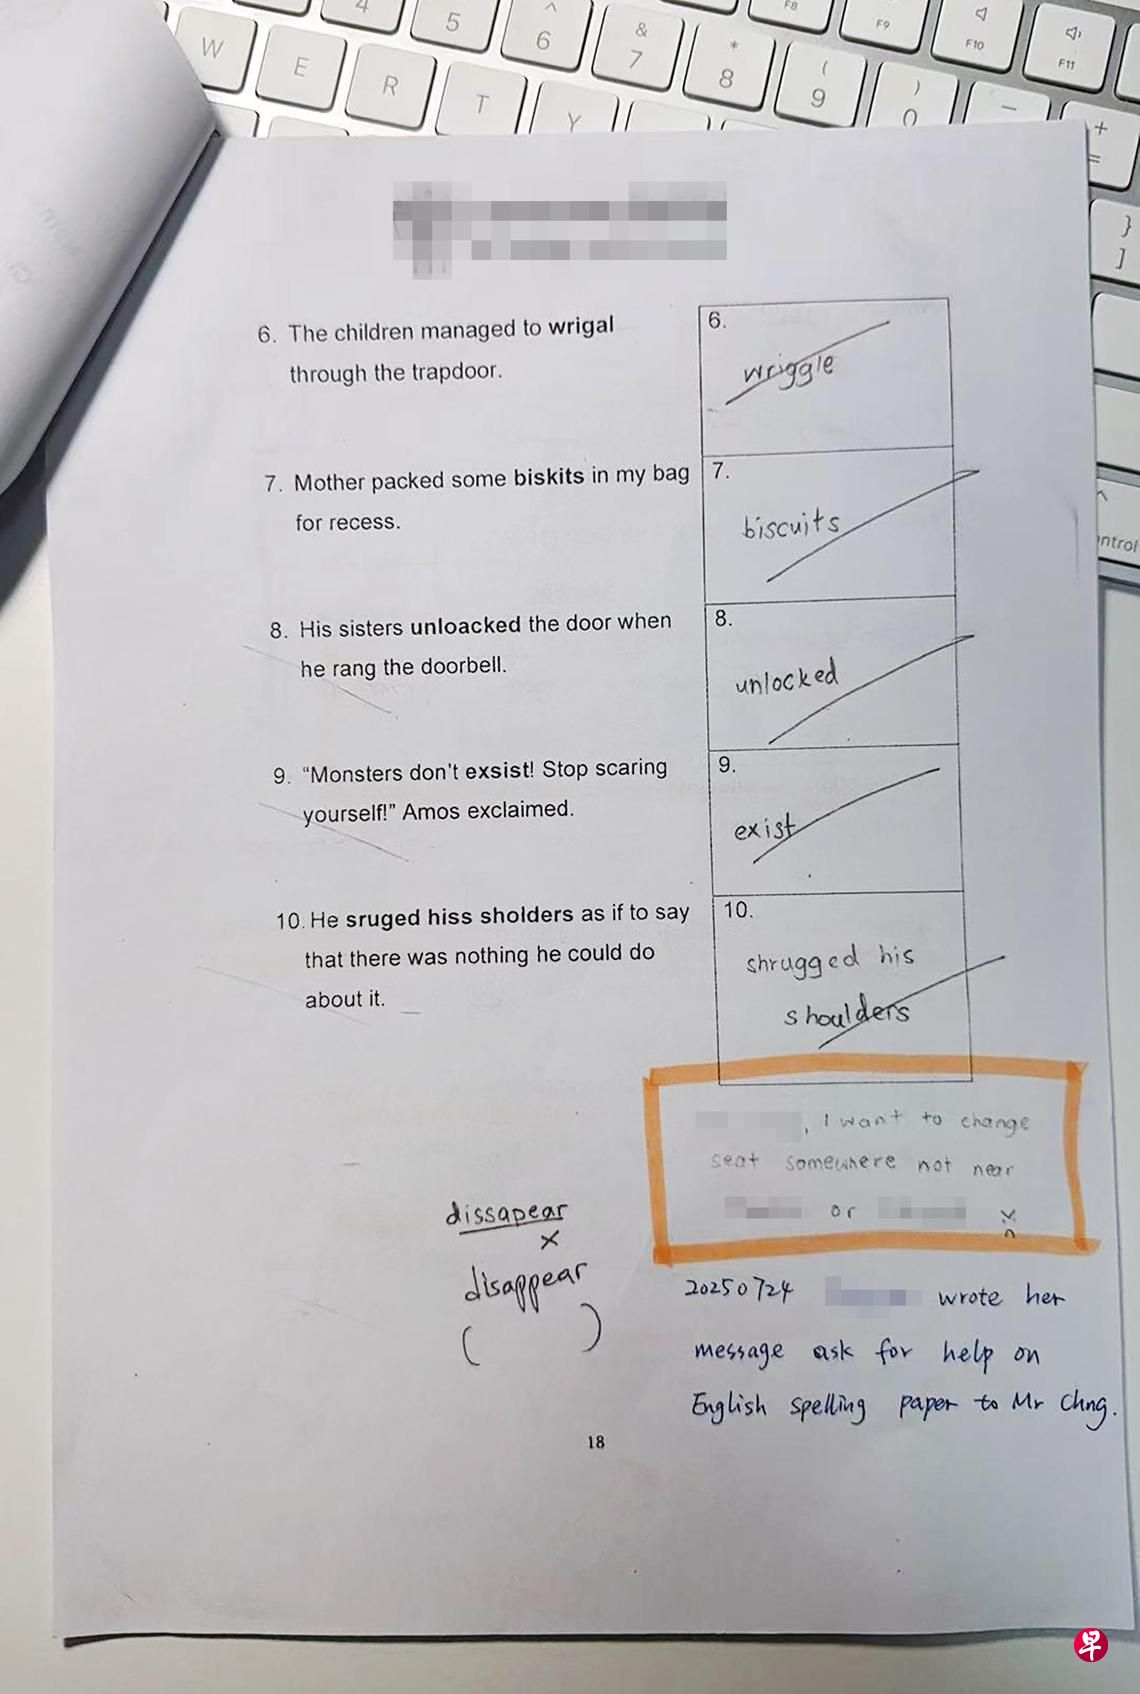 W E R T Y
4 5 ^ 6 & 7 * 8 ( 9 ) 0 — + =
F8 F9 F10 F11
} ]
^
ntrol
6. The children managed to wrigal
through the trapdoor.
6.
wriggle
7. Mother packed some biskits in my bag
for recess.
7.
biscuits
8. His sisters unloacked the door when
he rang the doorbell.
8.
unlocked
9. “Monsters don't exsist! Stop scaring
yourself!” Amos exclaimed.
9.
exist
10. He sruged hiss sholders as if to say
that there was nothing he could do
about it.
10.
shrugged his
shoulders
, I want to change
seat somewhere not near
or
dissapear
x
disappear
( )
20250724 wrote her
message ask for help on
English spelling paper to Mr Chng.
18
早